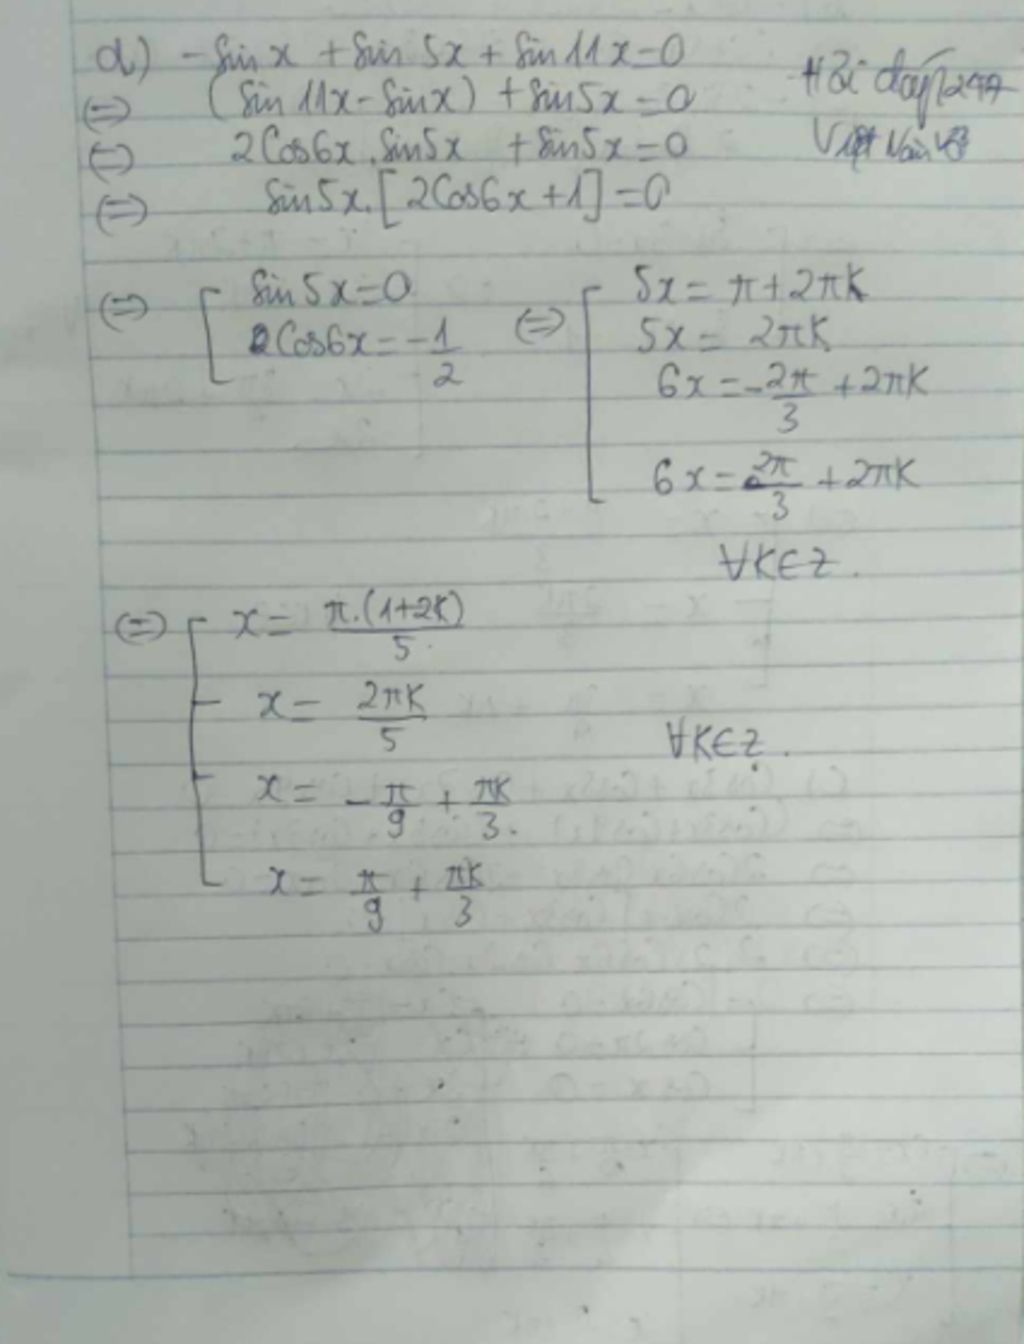 d) -Sin x + Sin 5x + Sin 11x = 0
(=) (Sin 11x - Sin x) + Sin 5x = 0
(=) 2Cos6x.Sin5x + Sin5x = 0
(=) Sin5x.[2Cos6x+1] = 0
Hỏi đáp 247
Việt Nam
(=) [ Sin 5x = 0
Cos6x = -1/2
(=) [ 5x = π + 2πK
5x = 2πK
6x = -2π/3 + 2πK
6x = 2π/3 + 2πK
∀K∈Z.
(=) [ x = π.(1+2K)/5
x = 2πK/5
x = -π/9 + πK/3.
x = π/9 + πK/3
∀K∈Z.